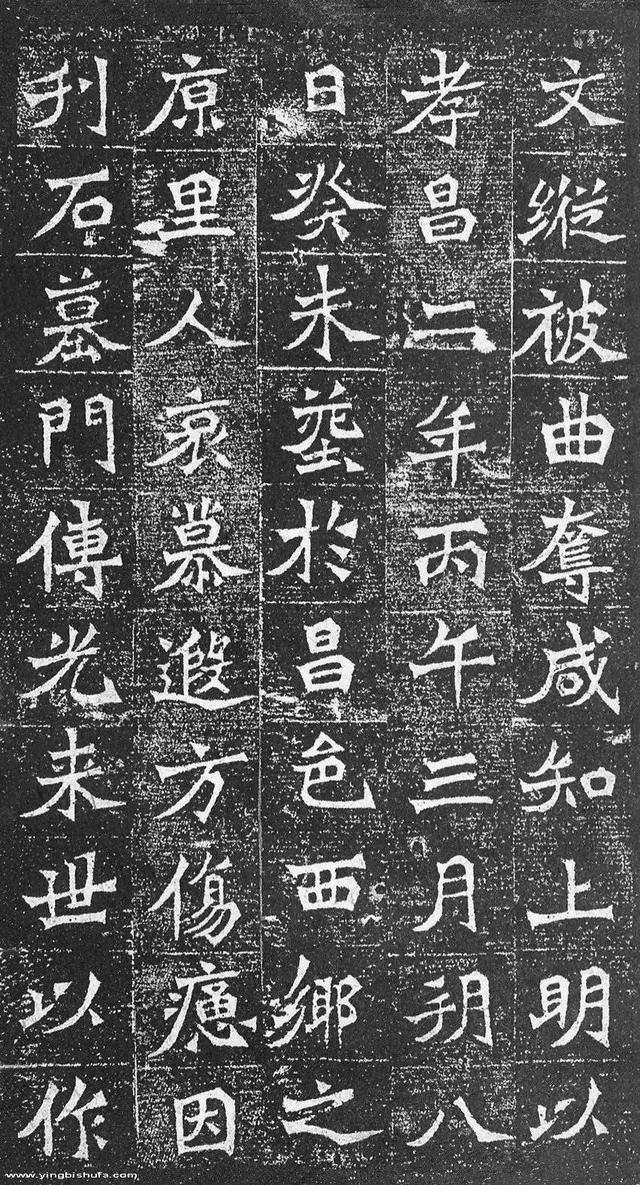 文縱被曲奪咸知上明以
孝昌二年丙午三月朔八
日癸未塟於昌邑西鄉之
原里人哀慕遐方傷癔因
刋石墓門傳光来世以作
www.yingbishufa.com